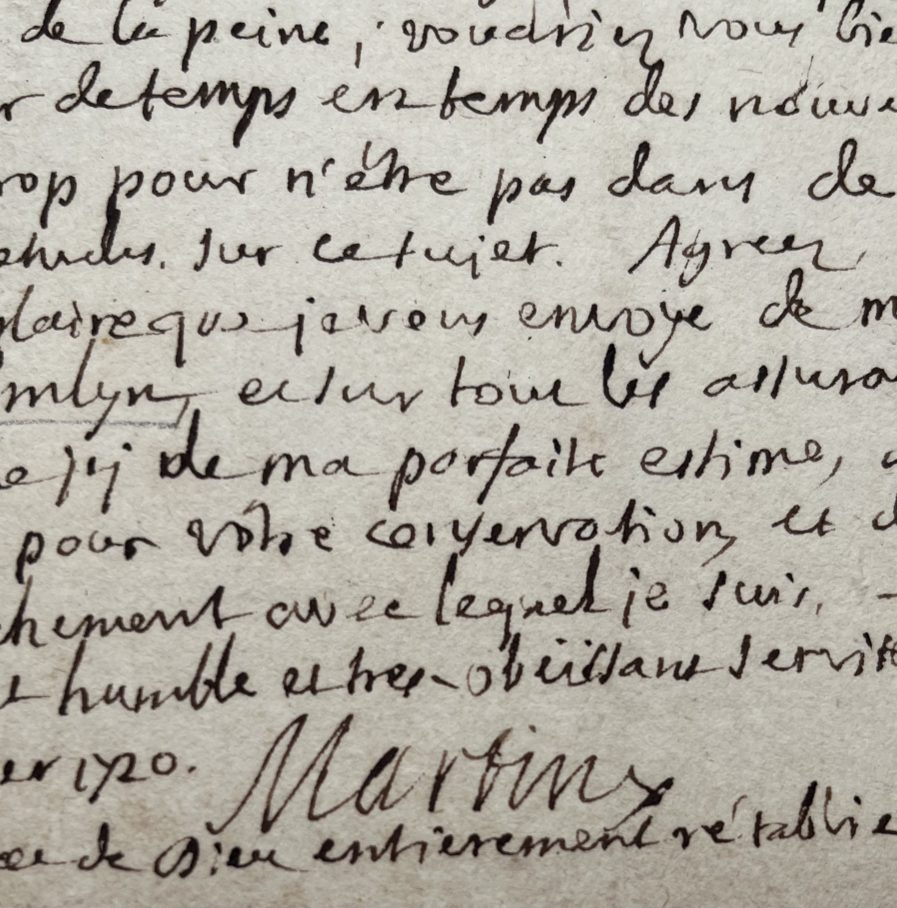 de la peine, voudriez vous bie
r de temps en temps des nouve
rop pour n'étre pas dans de
etudes sur ce sujet. Agreez
plaire que je vous envoye de m
et sur tout les assura
de ma parfaite estime,
pour vótre conservation, et d
chement avec lequel je suis,
humble et tres-obeïssant servite
er 1720. Martin
de Dieu entierement rétablie